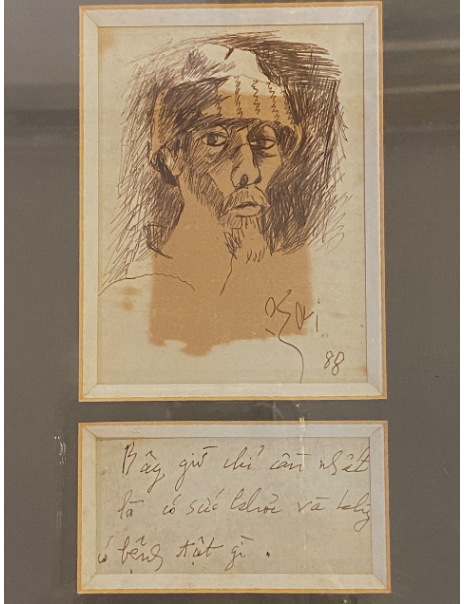 88
Bây giờ chỉ cần nhất
là có sức khỏe và không
có bệnh tật gì .